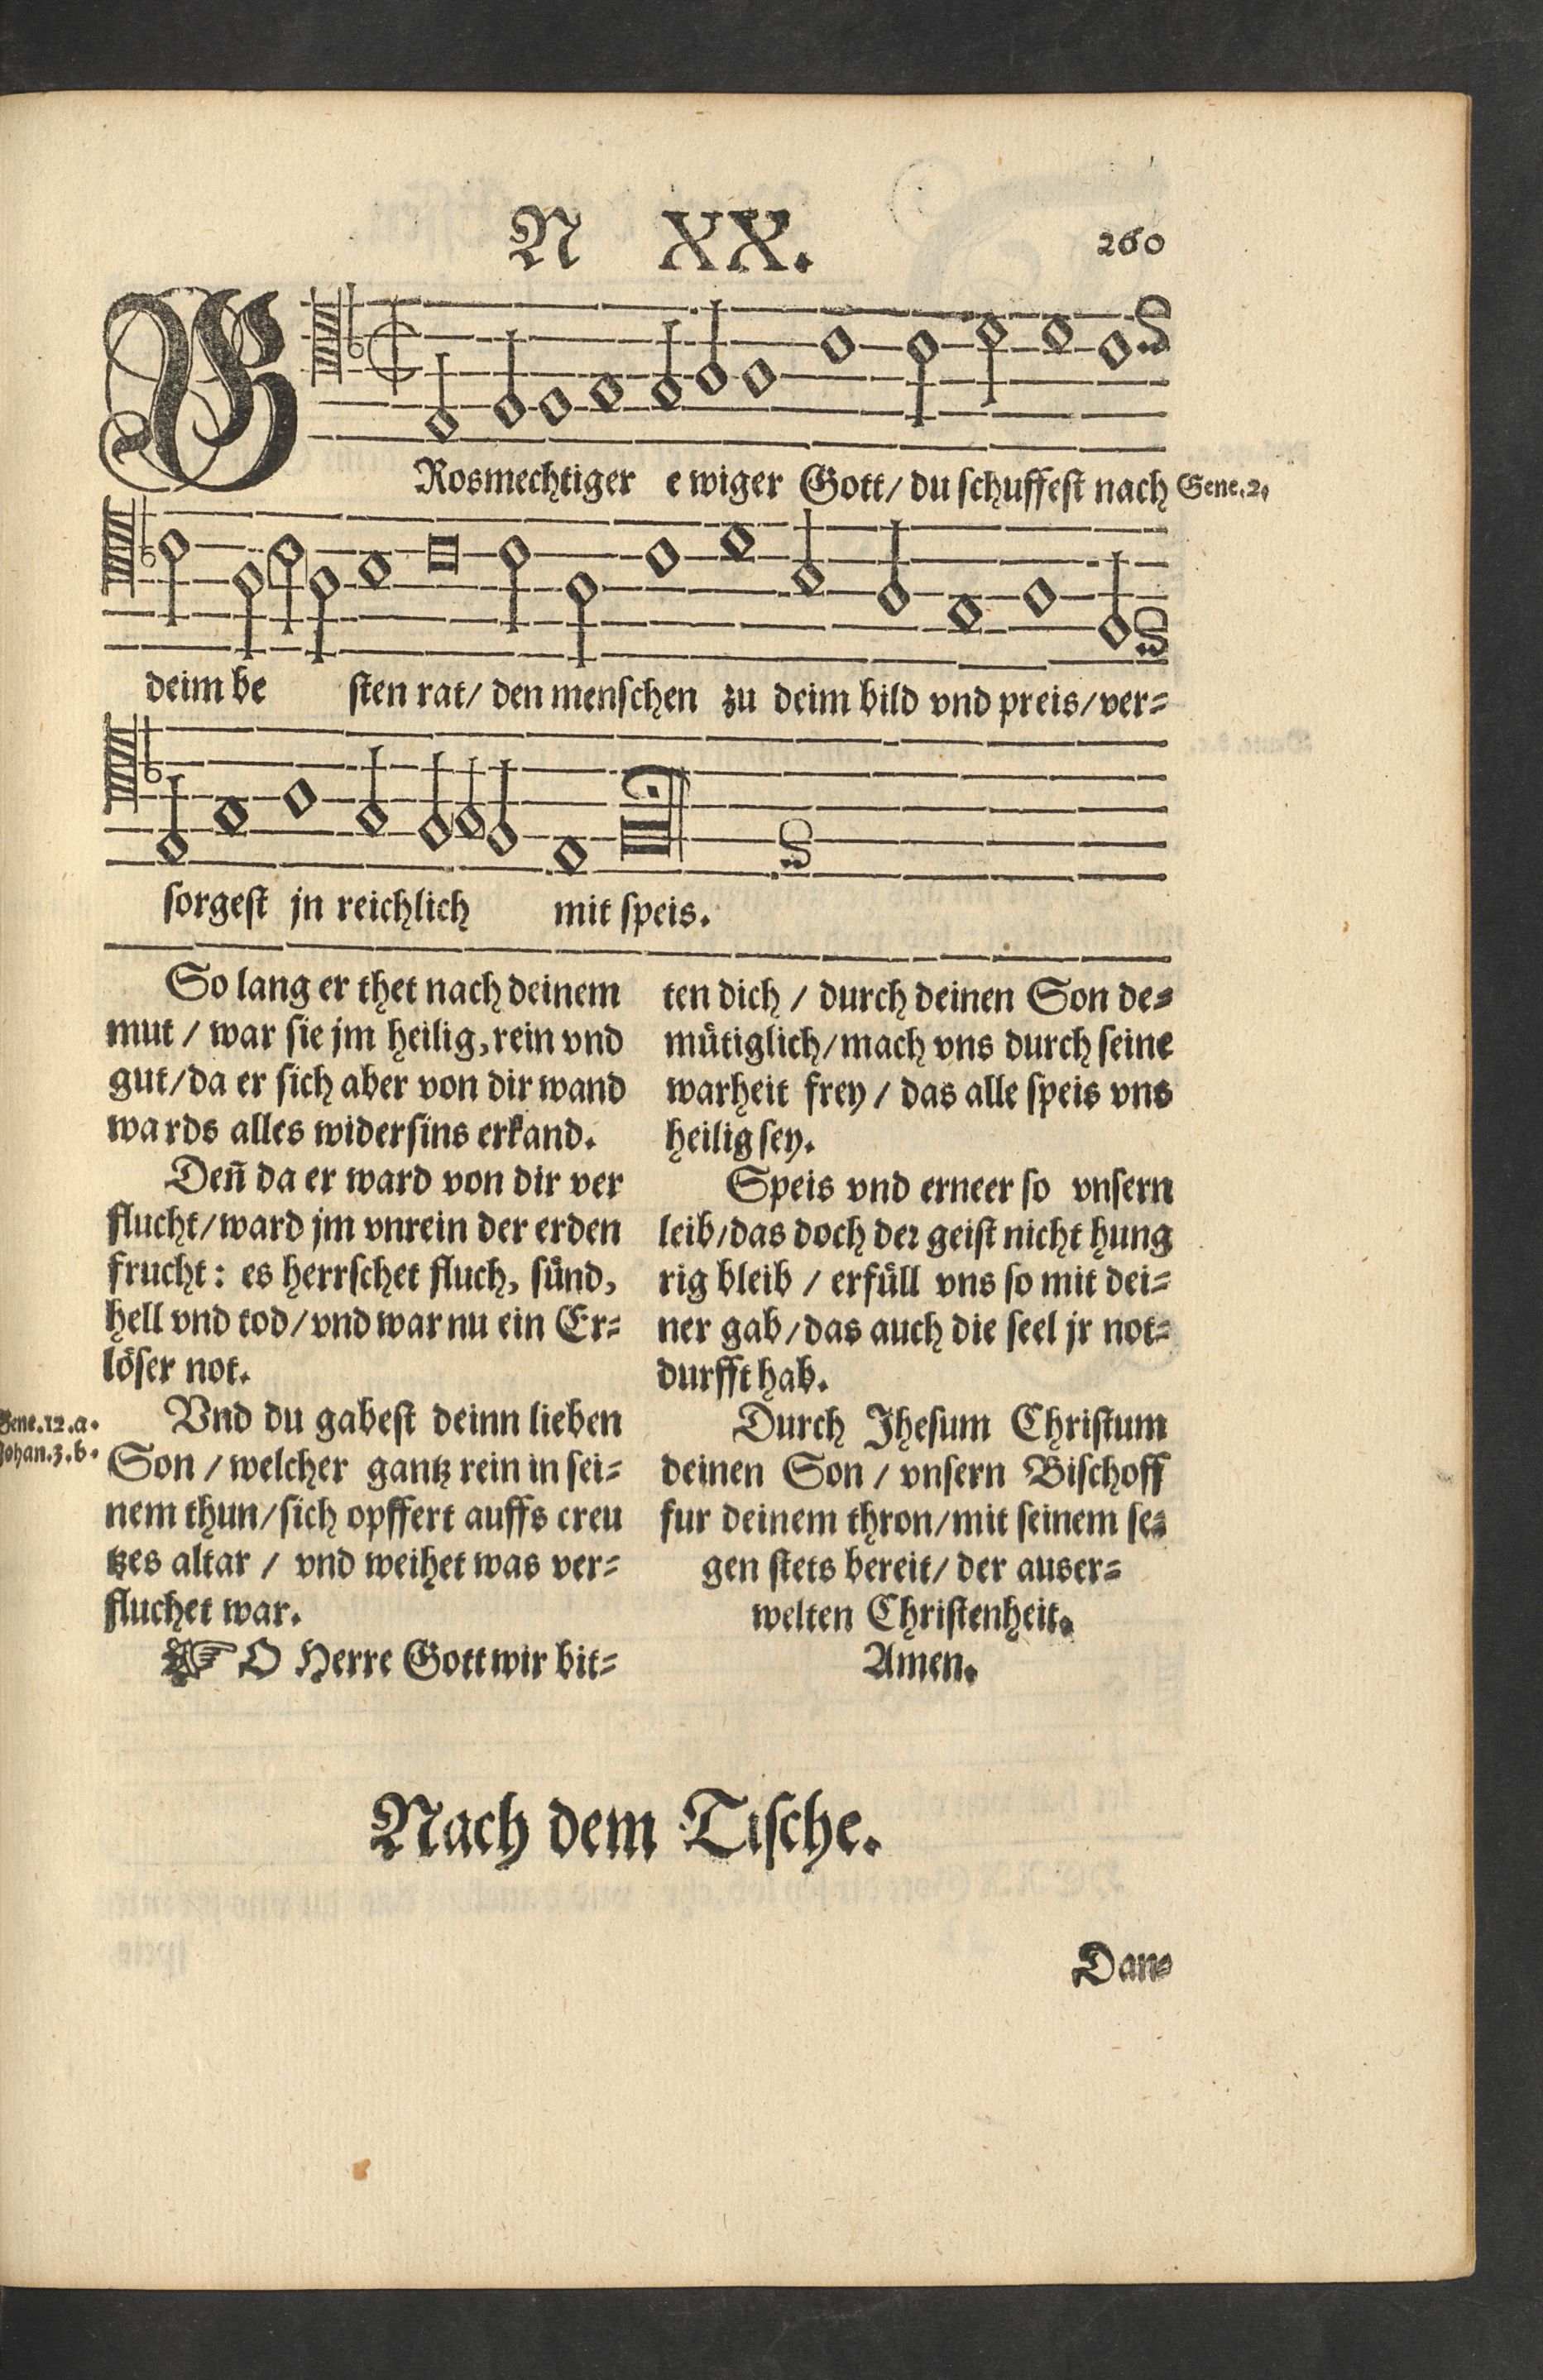 N XX. 260
GRosmechtiger e wiger Gott/ du schuffest nach Gene.2.
deim be sten rat/ den menschen zu deim bild vnd preis/ver⸗
sorgest jn reichlich mit speis.
So lang er thet nach deinem
mut / war sie jm heilig, rein vnd
gut/da er sich aber von dir wand
wards alles widersins erkand.
Den̄ da er ward von dir ver
flucht/ward jm vnrein der erden
frucht: es herrschet fluch, suͤnd,
hell vnd tod/vnd war nu ein Er⸗
loͤser not.
Gene.12.a.
Johan.3.b.
Vnd du gabest deinn lieben
Son / welcher gantz rein in sei⸗
nem thun/sich opffert auffs creu
tzes altar / vnd weihet was ver⸗
fluchet war.
☞ O Herre Gott wir bit⸗
ten dich / durch deinen Son de⸗
muͤtiglich/mach vns durch seine
warheit frey / das alle speis vns
heilig sey.
Speis vnd erneer so vnsern
leib/das doch der geist nicht hung
rig bleib / erfuͤll vns so mit dei⸗
ner gab/das auch die seel jr not⸗
durfft hab.
Durch Jhesum Christum
deinen Son / vnsern Bischoff
fur deinem thron/mit seinem se⸗
gen stets bereit/ der auser⸗
welten Christenheit.
Amen.
Nach dem Tische.
Dan⸗